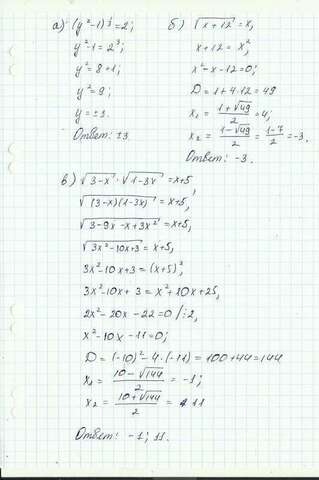 а) (y²-1)^⅓ = 2;
y²-1 = 2³;
y² = 8+1;
y² = 9;
y = ±3.
Ответ: ±3
б) √(x+12) = x,
x+12 = x²,
x²-x-12 = 0;
D = 1+4·12 = 49
x₁ = (1+√49)/2 = 4;
x₂ = (1-√49)/2 = (1-7)/2 = -3.
Ответ: -3.
в) √(3-x) · √(1-3x) = x+5,
√((3-x)(1-3x)) = x+5,
√(3-9x-x+3x²) = x+5,
√(3x²-10x+3) = x+5,
3x²-10x+3 = (x+5)²,
3x²-10x+3 = x²+10x+25,
2x²-20x-22 = 0 /:2,
x²-10x-11 = 0;
D = (-10)²-4·(-11) = 100+44 = 144
x₁ = (10-√144)/2 = -1;
x₂ = (10+√144)/2 = 11
Ответ: -1; 11.